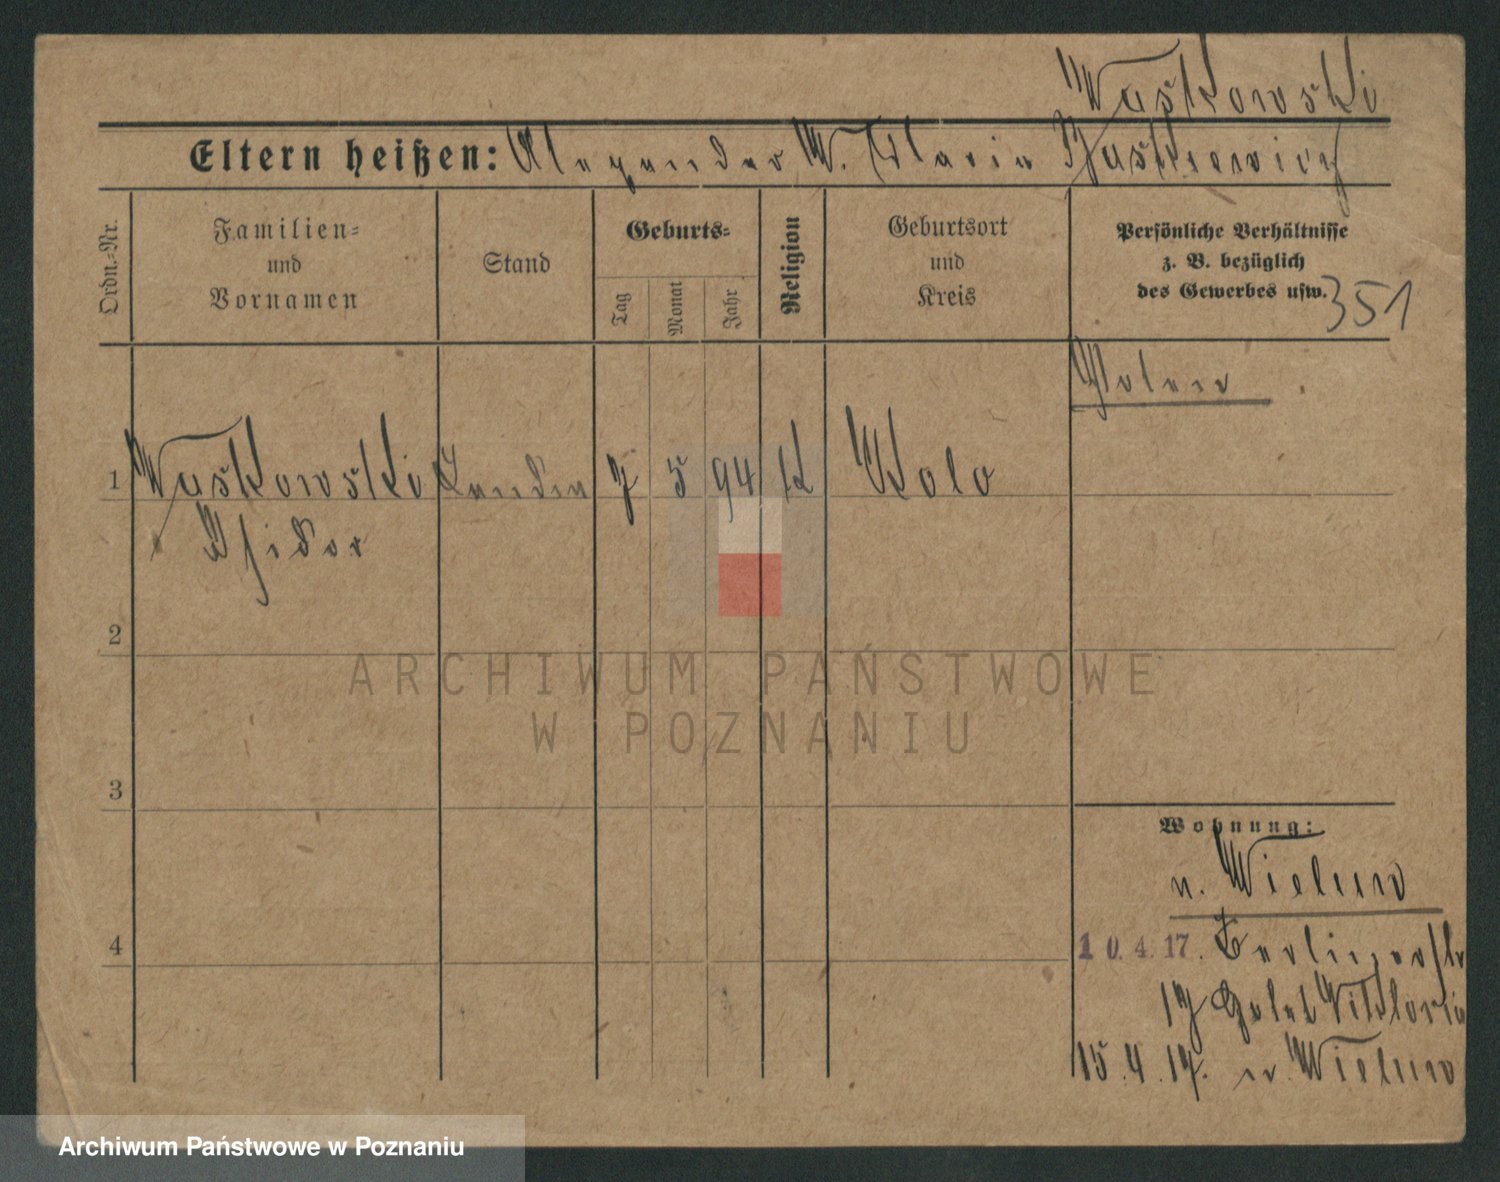 Waskowski
Eltern heißen: Alexander W. Maria
Ordn.-Nr.
Familien-
und
Vornamen
Stand
Geburts-
Tag
Monat
Jahr
Religion
Geburtsort
und
Kreis
Persönliche Verhältnisse
z. B. bezüglich
des Gewerbes usw.
351
Polen
1 Waskowski 7 5 94 K Kolo
Isidor
2
3
4
Wohnung:
n. Wielun
10.4.17. Berlinerstr
17 Hotel Viktoria
15.4.17. n. Wielun
ARCHIWUM PAŃSTWOWE
W POZNANIU
Archiwum Państwowe w Poznaniu